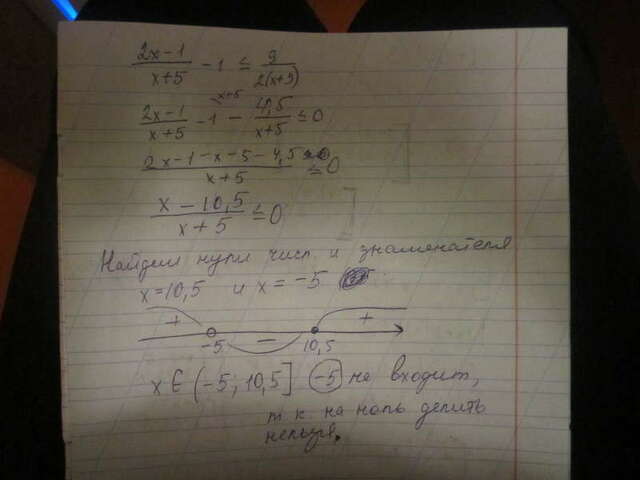 (2x-1)/(x+5) - 1 ≤ 9/(2(x+5))
(2x-1)/(x+5) - 1^(x+5) - 4,5/(x+5) ≤ 0
(2x-1-x-5-4,5)/(x+5) ≤ 0
(x-10,5)/(x+5) ≤ 0
Найдем нули числ. и знаменателя
x=10,5 и x=-5
+ - +
-5 10,5
x∈(-5; 10,5] -5 не входит,
т к на ноль делить
нельзя.